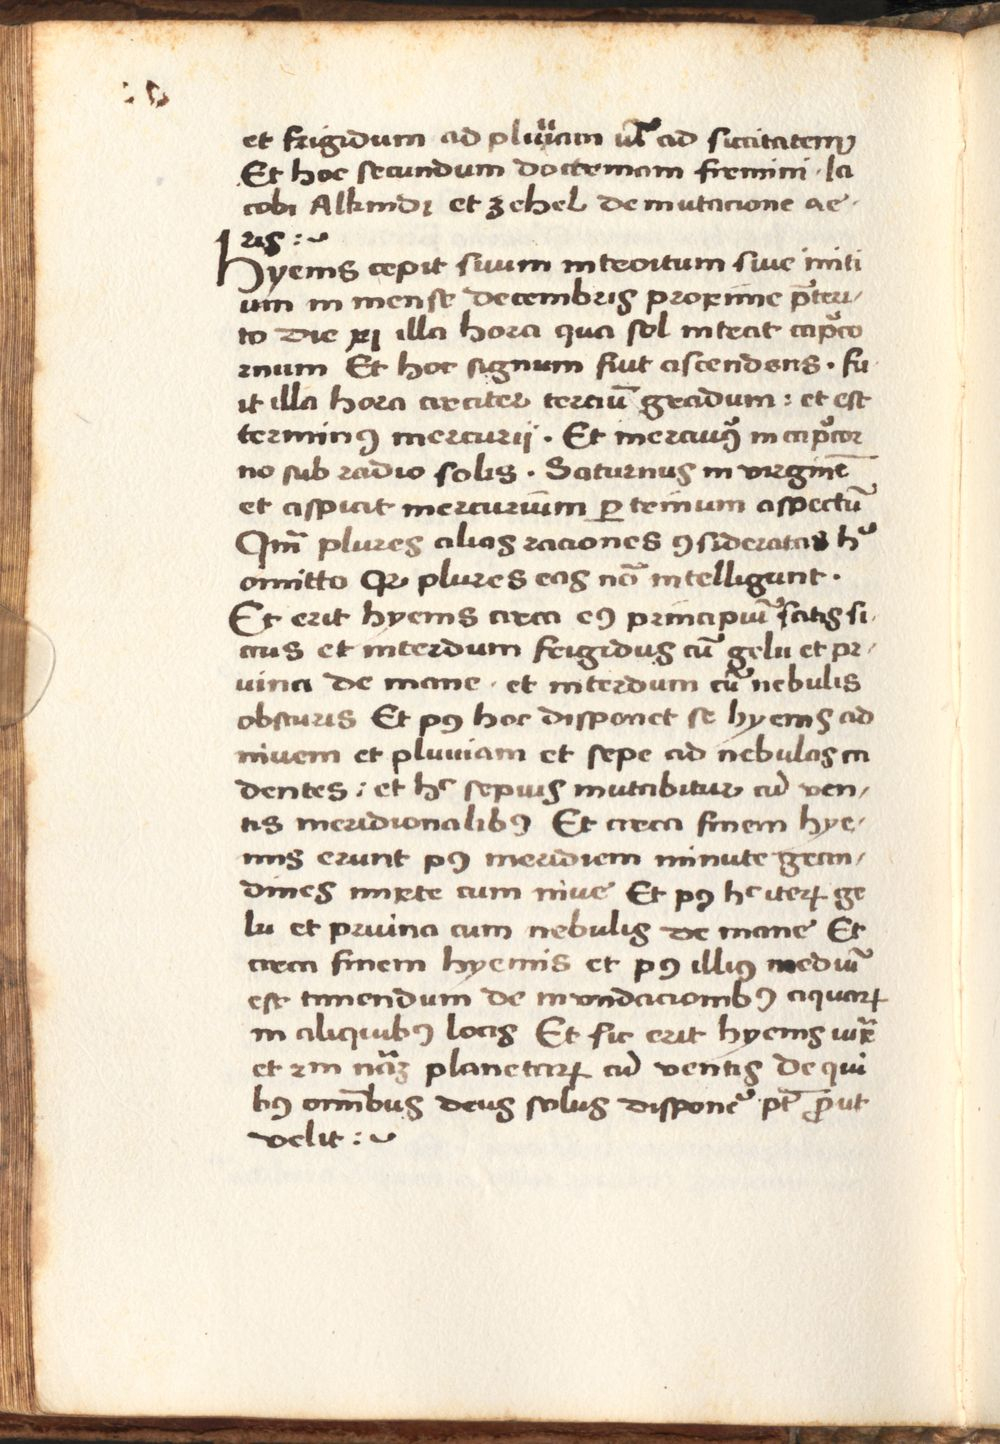 et frigidum ad pluuiam ul̄ ad siccitatem
Et hoc secundum doctrinam firmini · Ia
cobi Alkindi et zehel de mutacione ae·
ris :
Hyems cepit suum introitum siue initi
um in mense decembris proxime p̄teri/
to die xi illa hora qua sol intrat cap̄co
rnum Et hoc signum fiut ascendens · fu
it illa hora circiter terciū gradum : et est
terminꝰ mercurij · Et mercuriꝰ in cap̄cor
no sub radio solis · Saturnus in virginē
et aspicit mercurium ꝑ trinum aspectū
Qm̄ plures alias raciones ꝯsideratas hͦ
omitto qꝛ plures eas nō intelligunt ·
Et erit hyems circa eꝰ principiū satis si·
ccus et interdum frigidus cū gelu et pr/
uina de mane · et interdum cū nebulis
obscuris Et pꝰ hoc disponet se hyems ad
niuem et pluuiam et sepe ad nebulas ca
dentes : et hͨ sepius mutabitur cū ven/
tis meridionalibꝰ Et circa finem hye·
mis erunt pꝰ meridiem minute gran/
dines mixte cum niue Et pꝰ hͨ iterꝝ ge
lu et pruina cum nebulis de mane Et
circa finem hyemis et pꝰ illiꝰ mediū
est timendum de inundacionibꝰ aquarꝝ
in aliquibꝰ locis Et sic erit hyems iux̄
et 2m nāꝫ planetarꝝ cū ventis de qui
bꝰ omībus deus solus disponeꝰ pt̄ ꝓut
velit :